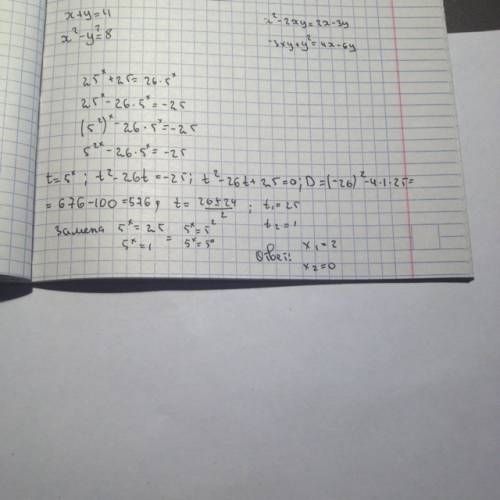 x+y=4
x²-y²=8
x²-2xy=2x-3y
-3xy+y²=4x-6y
25ˣ+25=26·5ˣ
25ˣ-26·5ˣ=-25
(5²)ˣ-26·5ˣ=-25
5²ˣ-26·5ˣ=-25
t=5ˣ; t²-26t=-25; t²-26t+25=0; D=(-26)²-4·1·25=
=676-100=576, t=26±24/2; t₁=25
t₂=1
Замена 5ˣ=25 = 5ˣ=5²
5ˣ=1 5ˣ=5⁰
Ответ: x₁=2
x₂=0